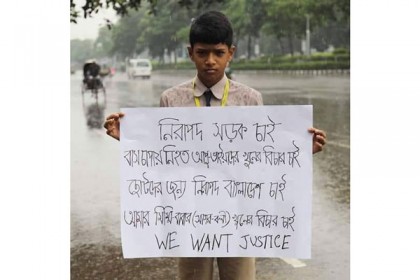 নিরাপদ সড়ক চাই
বাস চাপায় নিহত আপু ভাইয়াদের খুনের বিচার চাই
ছোটদের জন্য নিরাপদ বাংলাদেশ চাই
আমার খুনের বিচার চাই
WE WANT JUSTICE